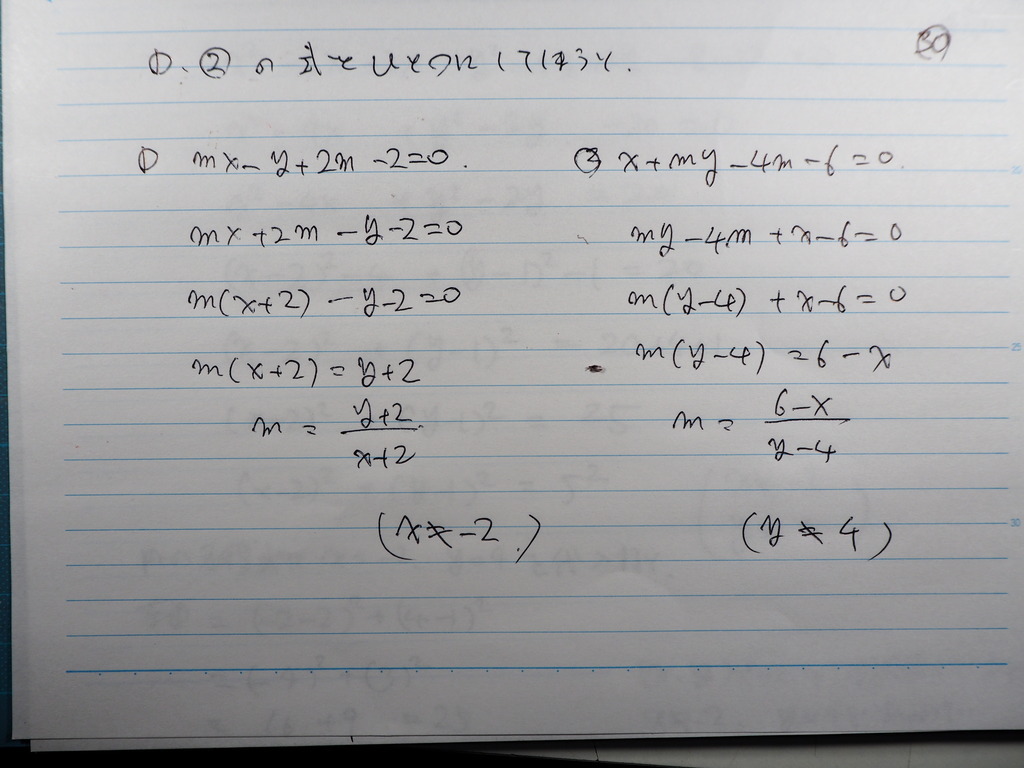 39
①、②の式をひとつにしていきます.
① mx-y+2m-2=0. ② x+my-4m-6=0.
mx+2m-y-2=0 my-4m+x-6=0
m(x+2)-y-2=0 m(y-4)+x-6=0
m(x+2)=y+2 m(y-4)=6-x
m=\frac{y+2}{x+2} m=\frac{6-x}{y-4}
(x≠-2) (y≠4)